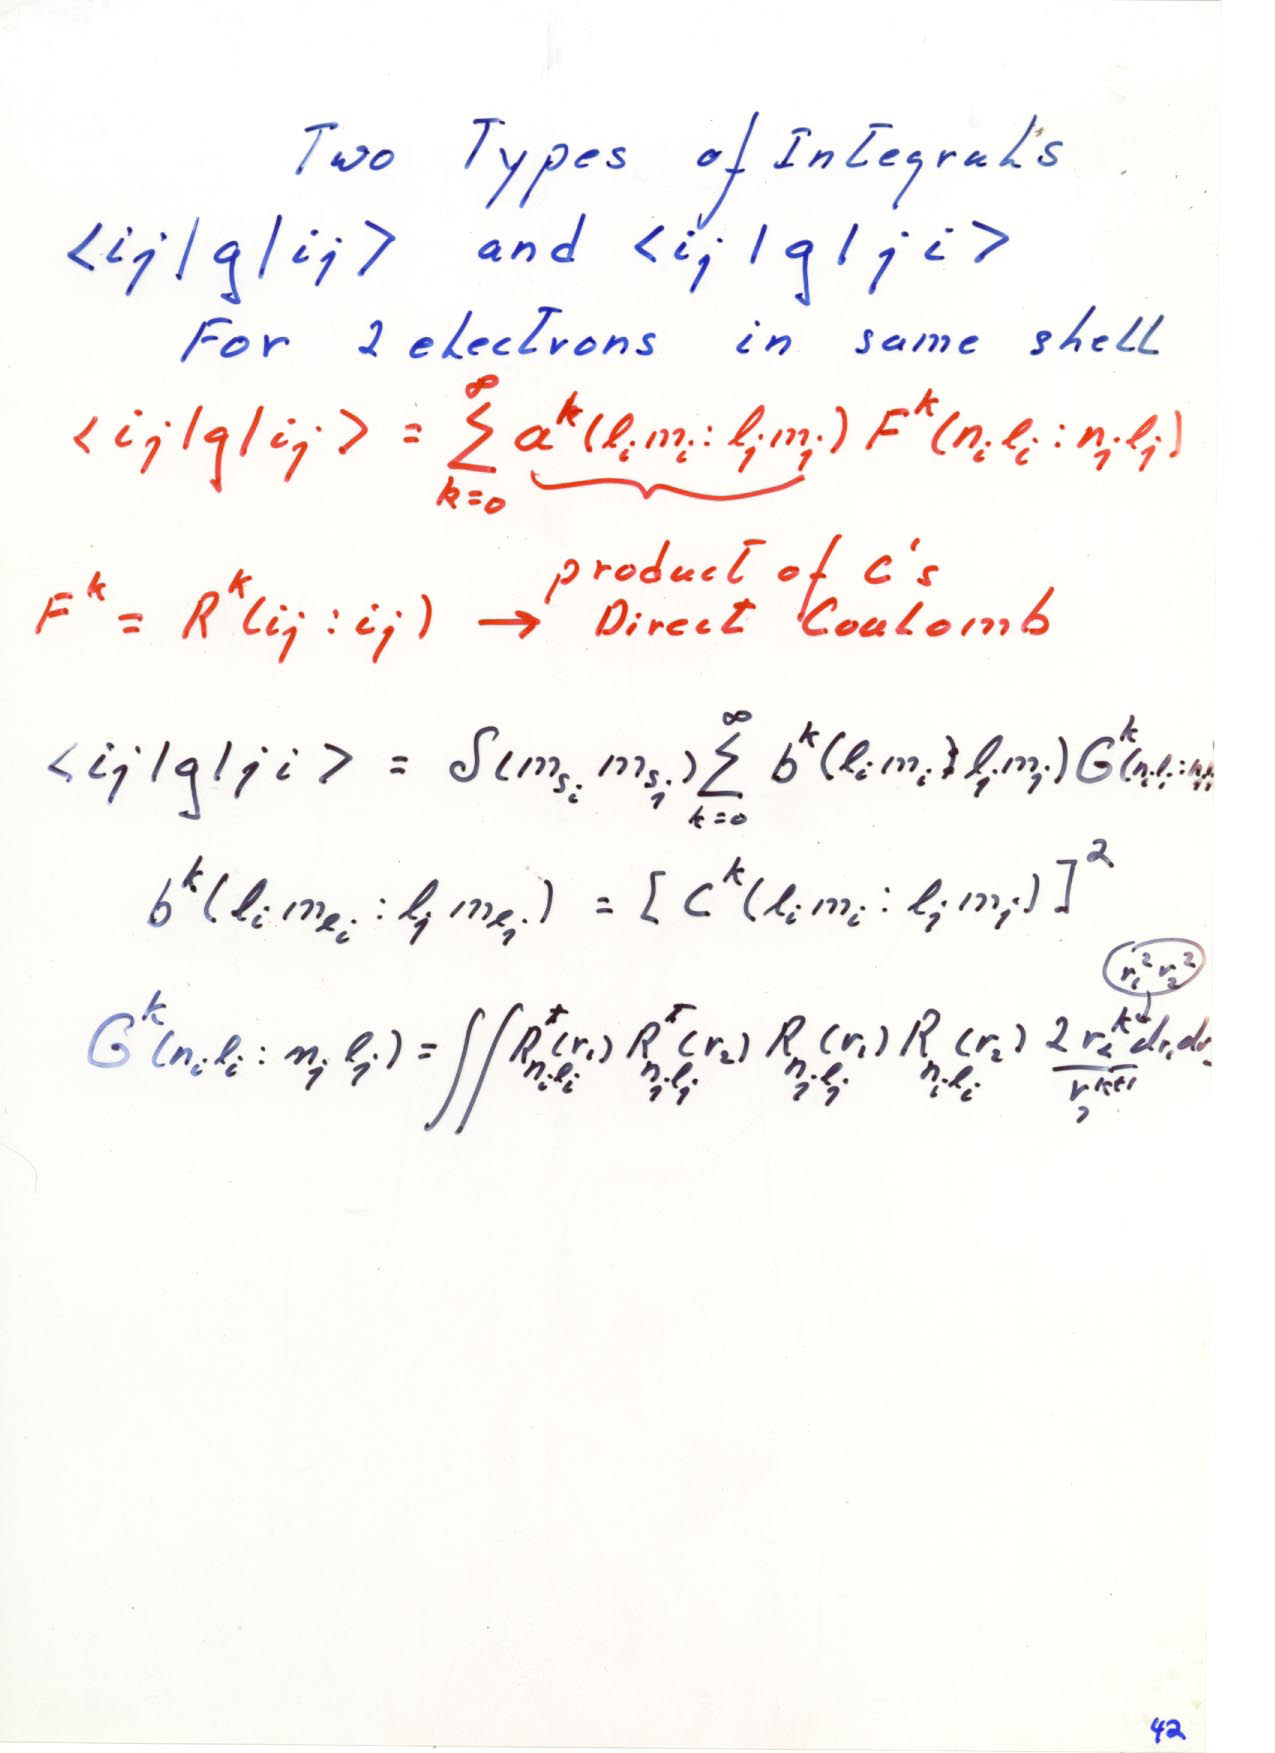 Two Types of Integrals
<ij|g|ij> and <ij|g|ji>
For 2 electrons in same shell
<ij|g|ij> = ∑_{k=0}^{∞} a^k(l_i m_i : l_j m_j) F^k(n_i l_i : n_j l_j)
product of c's
F^k = R^k(ij : ij) → Direct Coulomb
<ij|g|ji> = δ(m_{s_i} m_{s_j}) ∑_{k=0}^{∞} b^k(l_i m_i : l_j m_j) G^k(n_i l_i :
b^k(l_i m_{l_i} : l_j m_{l_j}) = [C^k(l_i m_i : l_j m_j)]^2
r_1^2 r_2^2
G^k(n_i l_i : n_j l_j) = ∫∫ R^*_{n_i l_i}(r_1) R^*_{n_j l_j}(r_2) R_{n_j l_j}(r_1) R_{n_i l_i}(r_2) 2 r_<^k / r_>^{k+1} dr_1 dr
42